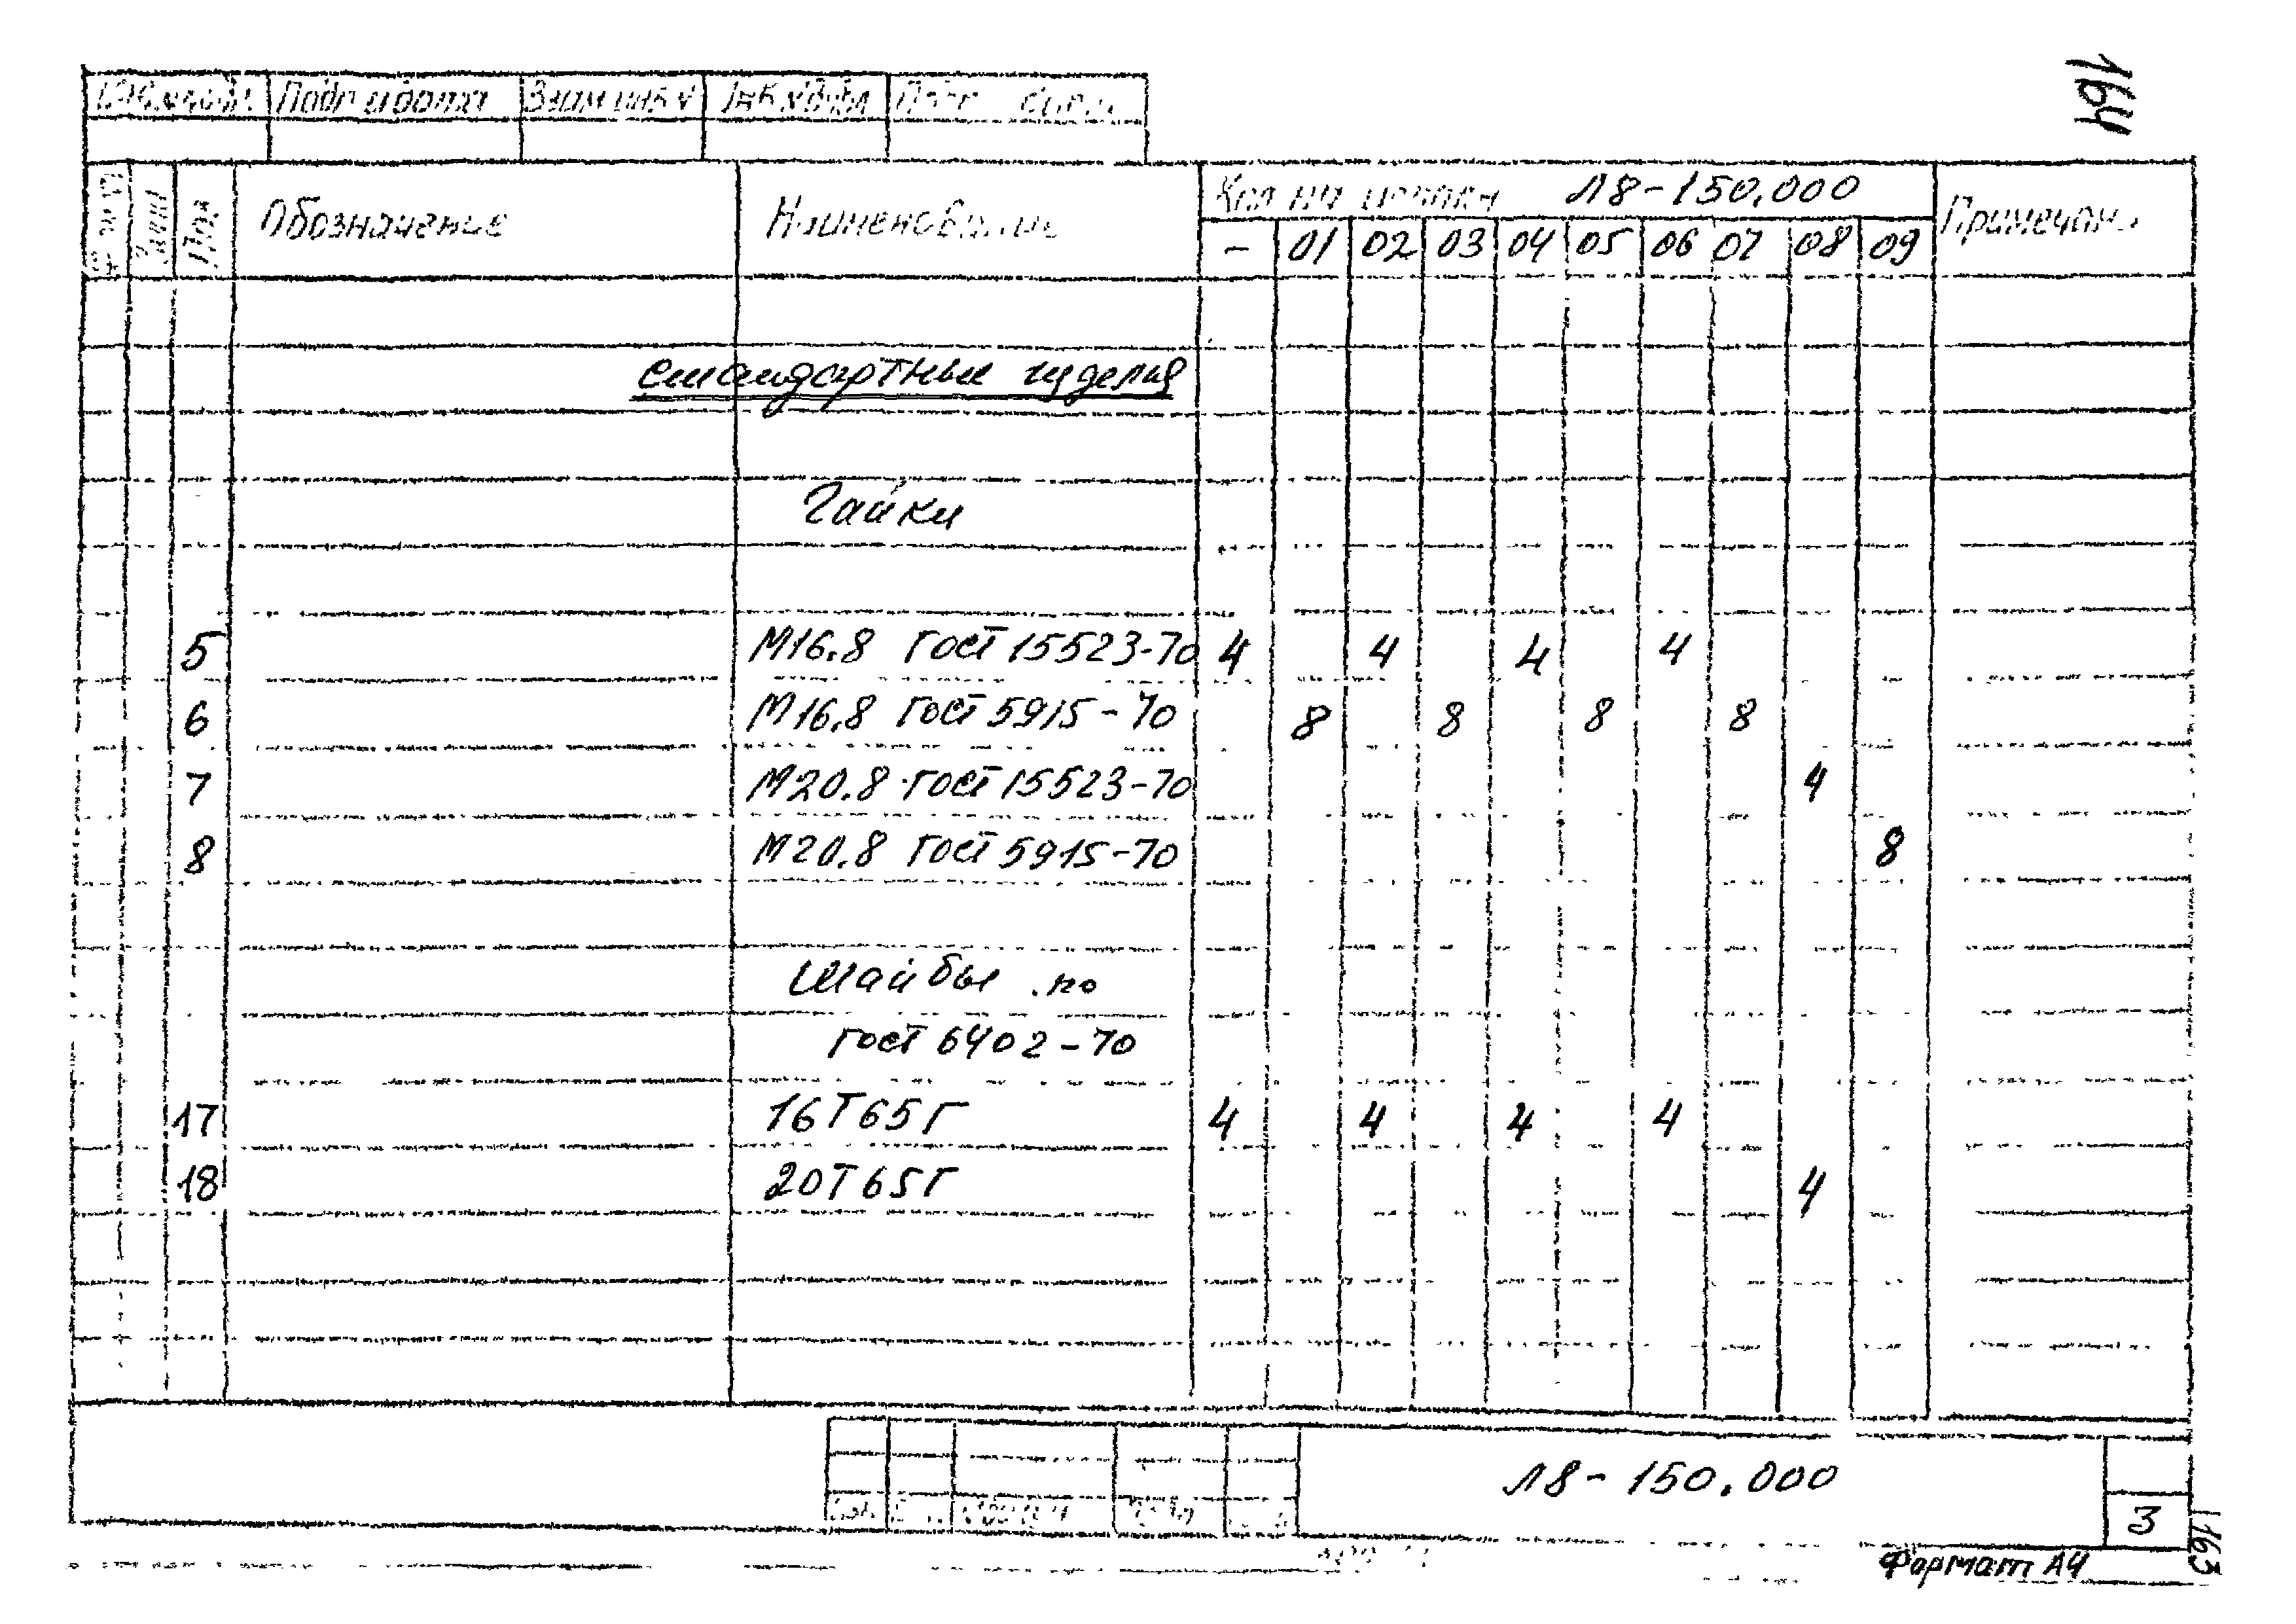 164
Подп и дата Взам инв № Инв № дубл
Поз Обозначение Наименование Кол на Л8-150.000
- 01 02 03 04 05 06 07 08 09
Стандартные изделия
Гайки
5 М16.8 ГОСТ 15523-70 4 4 4 4
6 М16.8 ГОСТ 5915-70 8 8 8 8
7 М20.8 ГОСТ 15523-70 4
8 М20.8 ГОСТ 5915-70 8
Шайбы по
ГОСТ 6402-70
17 16Т65Г 4 4 4 4
18 20Т65Г 4
Л8-150.000
3
Формат А4
163